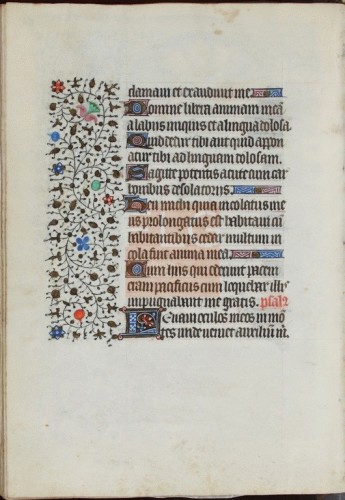 clamavi et exaudivit me
Domine libera animam meā
a labiis iniquis et a lingua dolosa
Quid detur tibi aut quid appon
atur tibi ad linguam dolosam
Sagitte potentis acute cum car
bonibus desolatoriis
Heu michi quia incolatus me
us prolongatus est habitavi cū
habitantibus cedar multum in
cola fuit anima mea
Cum hiis qui oderunt pacem
eram pacificus cum loquebar illis
impugnabant me gratis. psal
Levavi oculos meos in mō
tes unde veniet auxiliū m